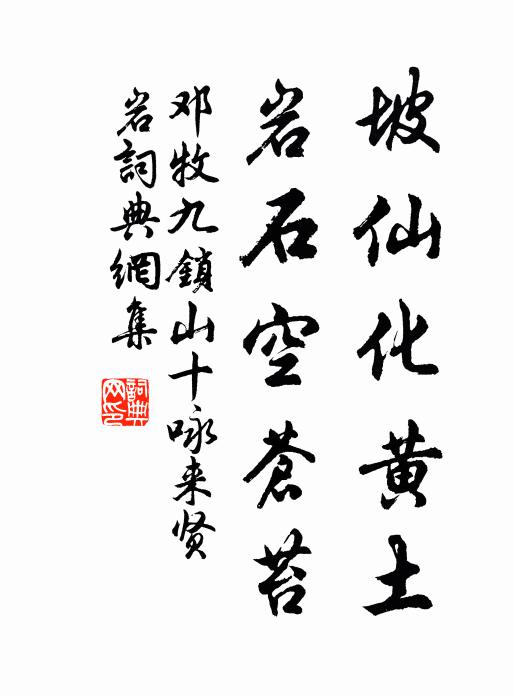 坡仙化黄土
岩石空蒼苔
邓牧九鎖山十咏来贤
岩詞典網集
詞典网印